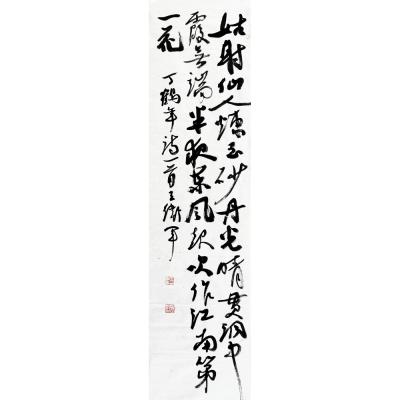 姑射仙人煉玉砂丹光晴貫洞中
霞無端半夜東風起吹作江南第
一花
丁鶴年诗一首王衛軍